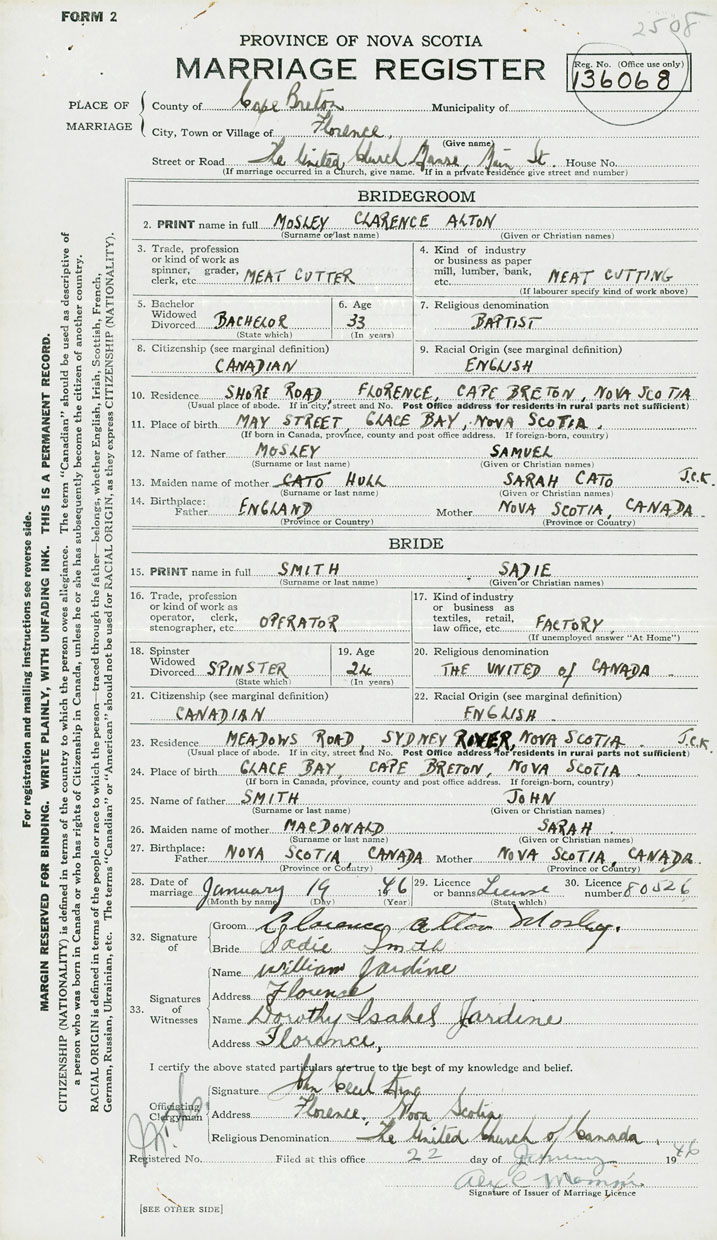 FORM 2
2508
PROVINCE OF NOVA SCOTIA
MARRIAGE REGISTER
Reg. No. (Office use only)
136068
PLACE OF MARRIAGE
County of Cape Breton Municipality of
City, Town or Village of Florence,
(Give name)
Street or Road The United Church Manse, Main St. House No.
(If marriage occurred in a Church, give name. If in a private residence give street and number)
BRIDEGROOM
2. PRINT name in full MOSLEY CLARENCE ALTON
(Surname or last name) (Given or Christian names)
3. Trade, profession or kind of work as spinner, grader, clerk, etc. MEAT CUTTER
4. Kind of industry or business as paper mill, lumber, bank, etc. MEAT CUTTING
(If labourer specify kind of work above)
5. Bachelor Widowed Divorced BACHELOR
(State which)
6. Age 33
(In years)
7. Religious denomination BAPTIST
8. Citizenship (see marginal definition) CANADIAN
9. Racial Origin (see marginal definition) ENGLISH
10. Residence SHORE ROAD, FLORENCE, CAPE BRETON, NOVA SCOTIA
(Usual place of abode. If in city, street and No. Post Office address for residents in rural parts not sufficient)
11. Place of birth MAY STREET, GLACE BAY, NOVA SCOTIA.
(If born in Canada, province, county and post office address. If foreign-born, country)
12. Name of father MOSLEY SAMUEL
(Surname or last name) (Given or Christian names)
13. Maiden name of mother CATO HULL SARAH CATO J.C.K.
(Surname or last name) (Given or Christian names)
14. Birthplace: Father ENGLAND Mother NOVA SCOTIA, CANADA.
(Province or Country) (Province or Country)
BRIDE
15. PRINT name in full SMITH SADIE
(Surname or last name) (Given or Christian names)
16. Trade, profession or kind of work as operator, clerk, stenographer, etc. OPERATOR
17. Kind of industry or business as textiles, retail, law office, etc. FACTORY
(If unemployed answer "At Home")
18. Spinster Widowed Divorced SPINSTER
(State which)
19. Age 24
(In years)
20. Religious denomination THE UNITED of CANADA
21. Citizenship (see marginal definition) CANADIAN
22. Racial Origin (see marginal definition) ENGLISH
23. Residence MEADOWS ROAD, SYDNEY RIVER, NOVA SCOTIA J.C.K.
(Usual place of abode. If in city, street and No. Post Office address for residents in rural parts not sufficient)
24. Place of birth GLACE BAY, CAPE BRETON, NOVA SCOTIA
(If born in Canada, province, county and post office address. If foreign-born, country)
25. Name of father SMITH JOHN
(Surname or last name) (Given or Christian names)
26. Maiden name of mother MACDONALD SARAH
(Surname or last name) (Given or Christian names)
27. Birthplace: Father NOVA SCOTIA, CANADA Mother NOVA SCOTIA, CANADA.
(Province or Country) (Province or Country)
28. Date of marriage January 19 46
(Month by name) (Day) (Year)
29. Licence or banns License
(State which)
30. Licence number 80526
32. Signature of
Groom Clarence Alton Mosley.
Bride Sadie Smith
33. Signatures of Witnesses
Name William Jardine
Address Florence
Name Dorothy Isabel Jardine
Address Florence,
I certify the above stated particulars are true to the best of my knowledge and belief.
Officiating Clergyman
Signature John Cecil King
Address Florence, Nova Scotia
Religious Denomination The United Church of Canada.
Registered No. Filed at this office 22 day of January 1946
Alex C
Signature of Issuer of Marriage Licence
[SEE OTHER SIDE]
For registration and mailing instructions see reverse side.
MARGIN RESERVED FOR BINDING. WRITE PLAINLY, WITH UNFADING INK. THIS IS A PERMANENT RECORD.
CITIZENSHIP (NATIONALITY) is defined in terms of the country to which the person owes allegiance. The term "Canadian" should be used as descriptive of
a person who was born in Canada or who has rights of Citizenship in Canada, unless he or she has subsequently become the citizen of another country.
RACIAL ORIGIN is defined in terms of the people or race to which the person—traced through the father—belongs, whether English, Irish, Scottish, French,
German, Russian, Ukrainian, etc. The terms "Canadian" or "American" should not be used for RACIAL ORIGIN, as they express CITIZENSHIP (NATIONALITY).